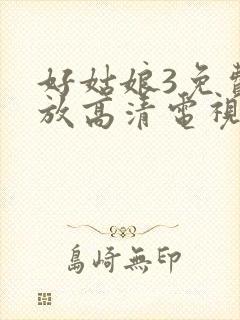 好姑娘3免費
放高清電視
島崎無印